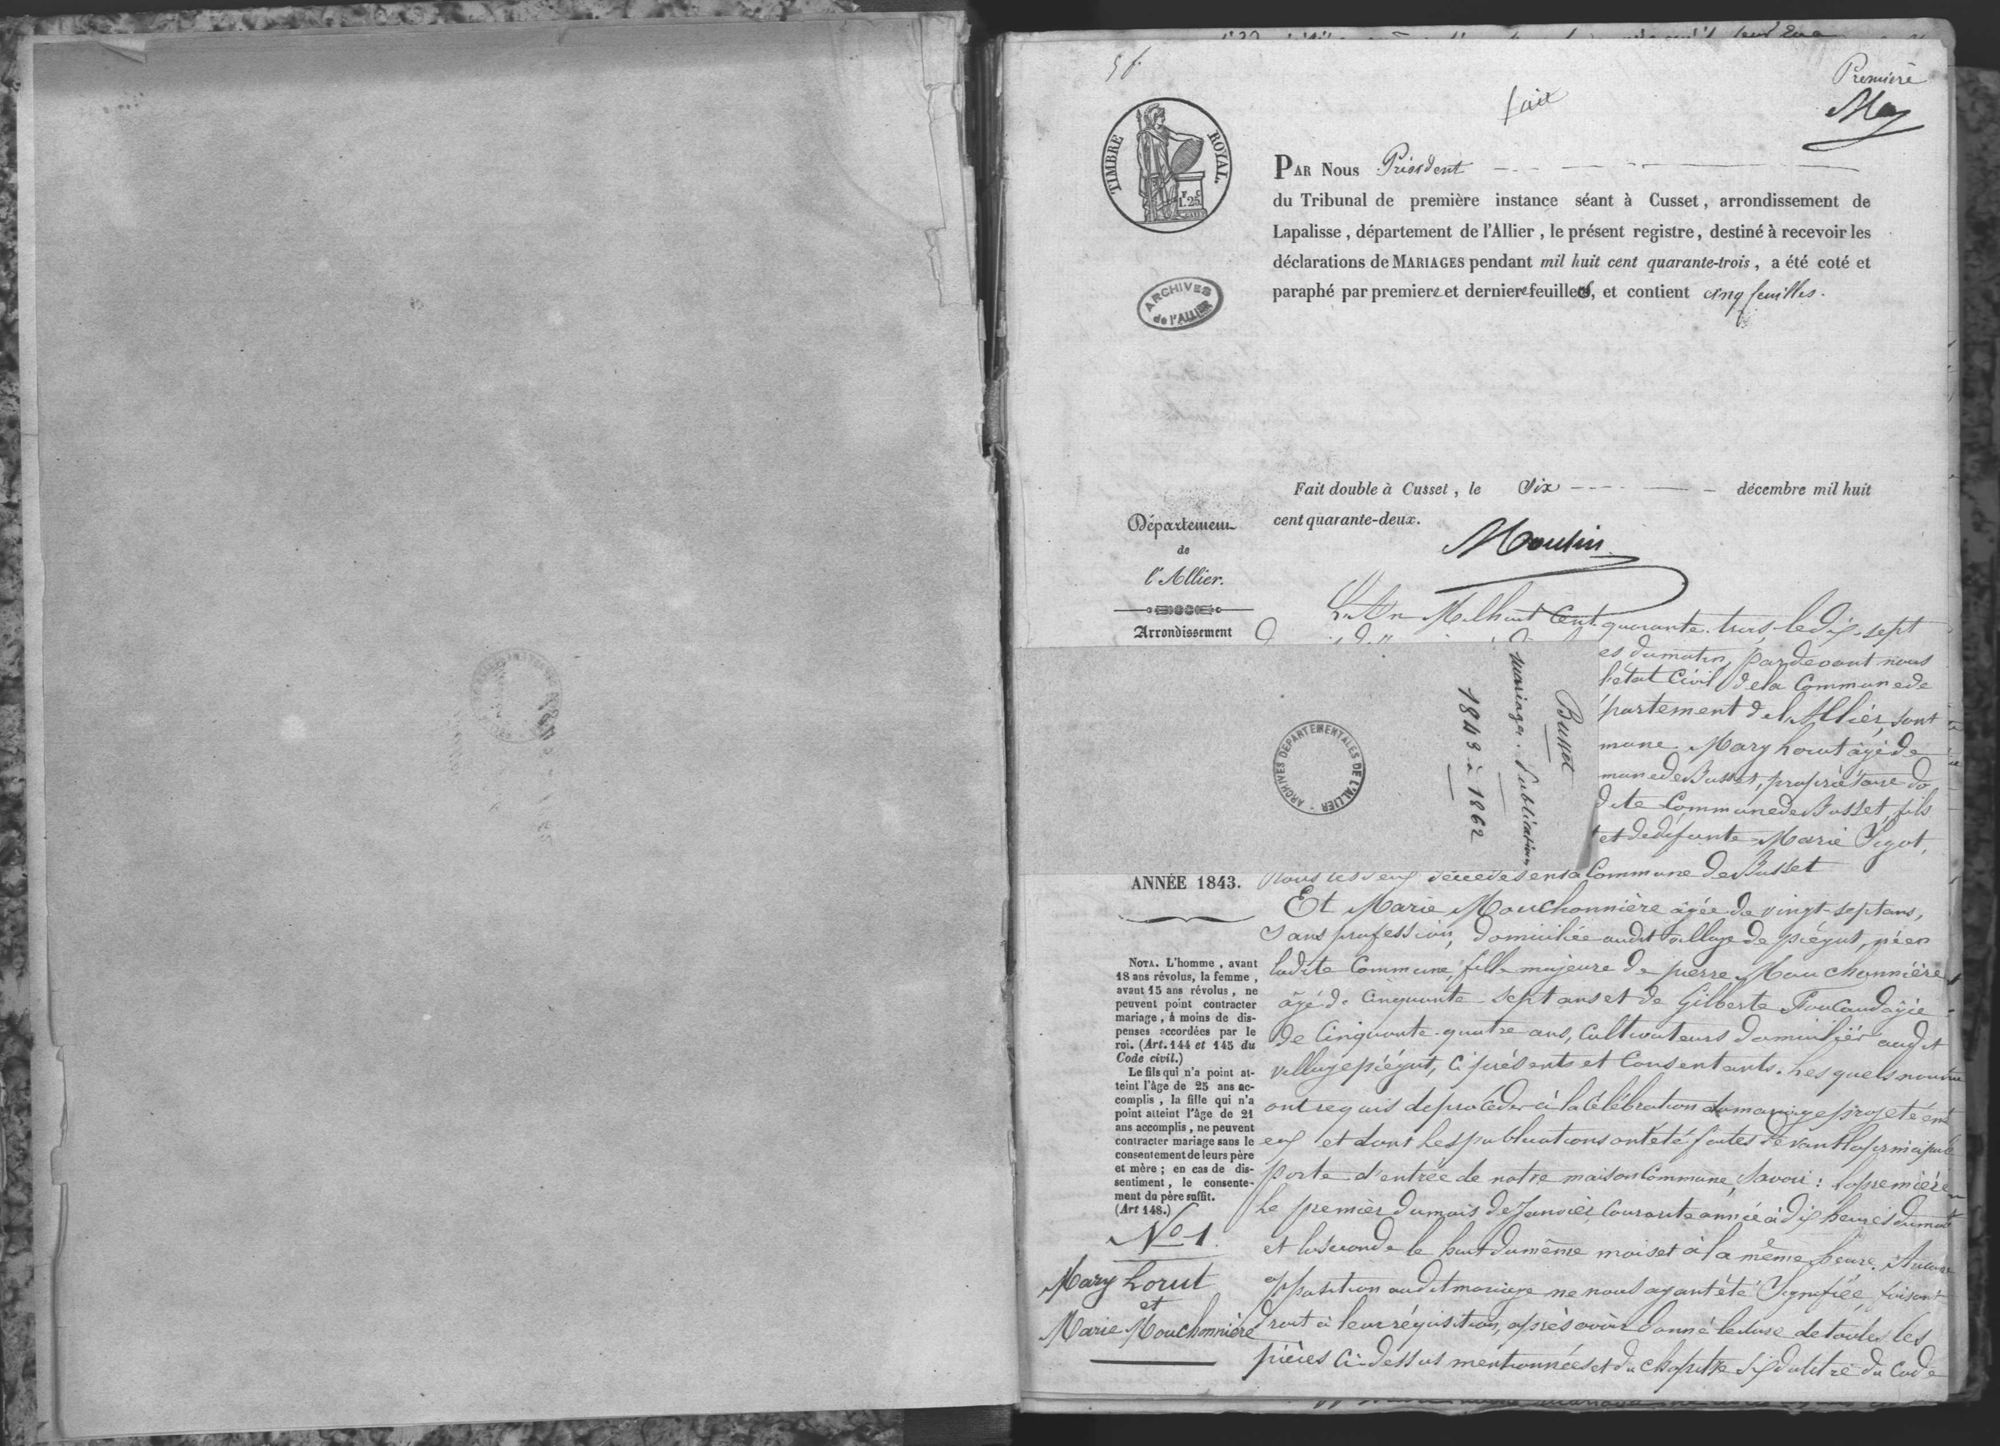 5 f.
fait
Première
May
TIMBRE ROYAL.
1.25
PAR NOUS Président
du Tribunal de première instance séant à Cusset, arrondissement de
Lapalisse, département de l'Allier, le présent registre, destiné à recevoir les
déclarations de MARIAGES pendant mil huit cent quarante-trois, a été coté et
paraphé par premiere et derniere feuilles, et contient cinq feuilles.
ARCHIVES de l'ALLIER
Fait double à Cusset, le Six décembre mil huit
cent quarante-deux.
Moulin
Département
de
l'Allier.
Arrondissement
L'An Mil huit Cent quarante trois, le dix-sept
es du matin, pardevant nous
l'état Civil de la Commune de
partement de l'Allier, sont
mune. Mary Lorut âgé de
mune de Busset, propriétaire do
dite Commune de Busset, fils
et de défunte Marie Pigot,
Busset
mariages. Publications
1843 à 1862
ARCHIVES DEPARTEMENTALES DE L'ALLIER
ANNÉE 1843.
Tous les deux décédés en sa Commune de Busset
Et Marie Mouchonnière âgée de vingt-sept ans,
Sans profession, domiciliée audit village de piégut, née en
ladite Commune, fille majeure de pierre Mouchonnière
âgé de Cinquante-sept ans et de Gilberte Foucaud âgée
de Cinquante-quatre ans, Cultivateurs domiciliés audit
village piégut, Ci présents et Consentants. Lesquels nous
ont requis de procéder à la Célébration du mariage projeté en
eux et dont les publications ont été faites devant la principale
porte d'entrée de notre maison Commune, Savoir : la première
le premier du mois de Janvier Courante année à dix heures du mat
et la Seconde le huit du même mois et à la même heure. Aucune
opposition audit mariage ne nous ayant été Signifiée, faisant
droit à leur réquisition, après avoir donné lecture de toutes les
pièces Ci-dessus mentionnées et du chapitre six du titre du Code
NOTA. L'homme, avant
18 ans révolus, la femme,
avant 15 ans révolus, ne
peuvent point contracter
mariage, à moins de dis-
penses accordées par le
roi. (Art. 144 et 145 du
Code civil.)
Le fils qui n'a point at-
teint l'âge de 25 ans ac-
complis, la fille qui n'a
point atteint l'âge de 21
ans accomplis, ne peuvent
contracter mariage sans le
consentement de leurs père
et mère ; en cas de dis-
sentiment, le consente-
ment du père suffit.
(Art 148.)
No 1
Mary Lorut
et
Marie Mouchonnière